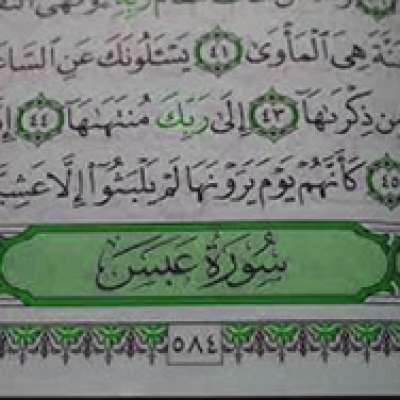 هِيَ ٱلْمَأْوَىٰ ٤١ يَسْـَٔلُونَكَ عَنِ
ذِكْرَىٰهَآ ٤٣ إِلَىٰ رَبِّكَ مُنتَهَىٰهَآ ٤٤
٤٥ كَأَنَّهُمْ يَوْمَ يَرَوْنَهَا لَمْ يَلْبَثُوٓا۟ إِلَّا
سُورَةُ عَبَسَ
٥٨٤